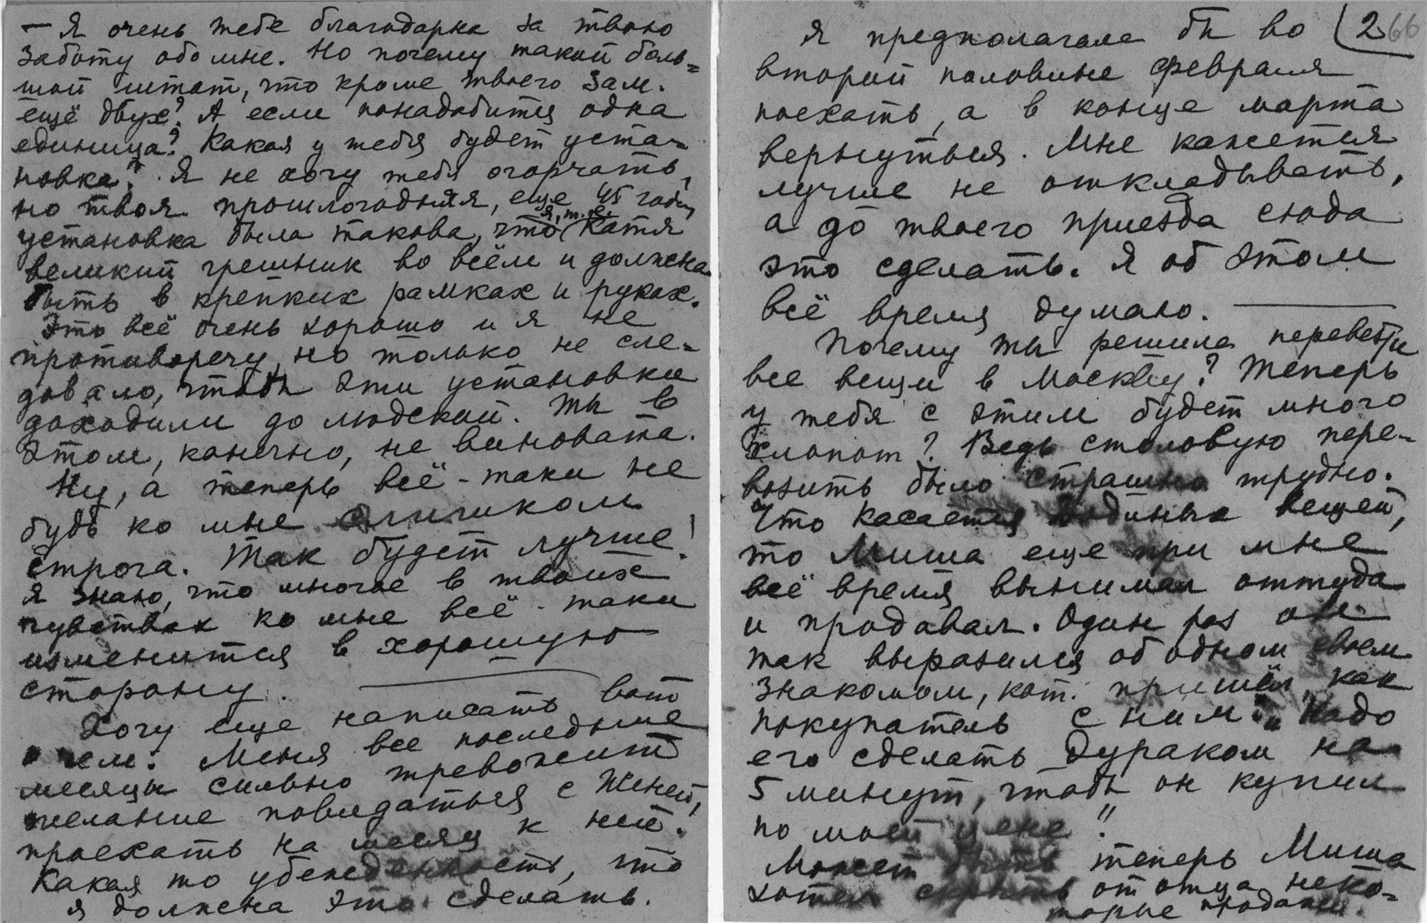 — Я очень тебе благодарна за твою
заботу обо мне. Но почему такой боль=
шой штат, что кроме твоего зам.
ещё двух? А если понадобится одна
единица? Какая у тебя будет уста=
новка? Я не хочу тебя огорчать,
но твоя прошлогодняя, еще 45 года,
установка была такова, что (я, т.е. Катя
великий грешник во всём и должна
быть в крепких рамках и руках.
Это всё очень хорошо и я не
противоречу, но только не сле=
довало, чтоб эти установки
доходили до людской. Ты в
этом, конечно, не виновата.
Ну, а теперь всё-таки не
будь ко мне слишком
строга. Так будет лучше!
Я знаю, что многое в твоих
чувствах ко мне всё-таки
изменится в хорошую
сторону.
Хочу еще написать вот
о чем. Меня все последние
месяцы сильно тревожит
желание повидаться с Женей,
проехать на месяц к ней.
Какая то убежденность, что
я должна это сделать.
266
Я предполагала бы во
второй половине февраля
поехать, а в конце марта
вернуться. Мне кажется
лучше не откладывать,
а до твоего приезда сюда
это сделать. Я об этом
всё время думаю.
Почему ты решила перевезти
все вещи в Москву? Теперь
у тебя с этим будет много
хлопот? Ведь столовую пере-
возить было страшно трудно.
Что касается вещей,
то Миша еще при мне
всё время вынимал оттуда
и продавал. Один раз он
так выразился об одном своем
знакомом, кот. пришёл, как
покупатель с ним: „Надо
его сделать дураком на
5 минут, чтобы он купил
по моей цене“!
Может быть теперь Миша
хотел скрыть от отца неко-
торые продажи.